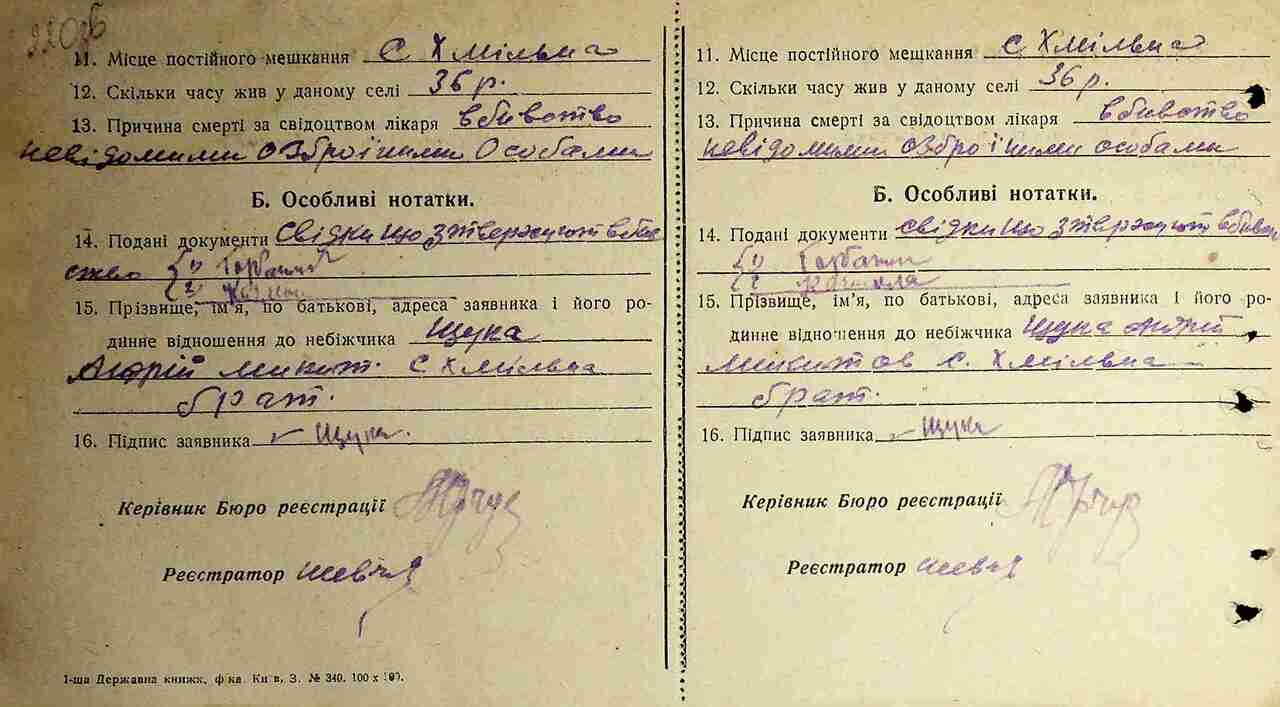 11. Місце постійного мешкання с Хмільна
12. Скільки часу жив у даному селі 36 р.
13. Причина смерті за свідоцтвом лікаря вбивство
невідомими озброїними Особами
Б. Особливі нотатки.
14. Подані документи свідки що зтвержують вбив
ство { 1)
{ 2)
15. Прізвище, ім'я, по батькові, адреса заявника і його ро-
динне відношення до небіжчика Щука
Андрій микит. С Хмільна
брат.
16. Підпис заявника Щука.
Керівник Бюро реєстрації
Реєстратор
1-ша Державна книжк. ф-ка. Київ, З. № 340. 100 х 100.
11. Місце постійного мешкання с Хмільна
12. Скільки часу жив у даному селі 36 р.
13. Причина смерті за свідоцтвом лікаря вбивство
невідомими озброїними особами
Б. Особливі нотатки.
14. Подані документи свідки що зтвержують вбивс
{ 1)
{ 2
15. Прізвище, ім'я, по батькові, адреса заявника і його ро-
динне відношення до небіжчика Щука Андрій
микитов с. Хмільна
брат.
16. Підпис заявника Щука
Керівник Бюро реєстрації
Реєстратор